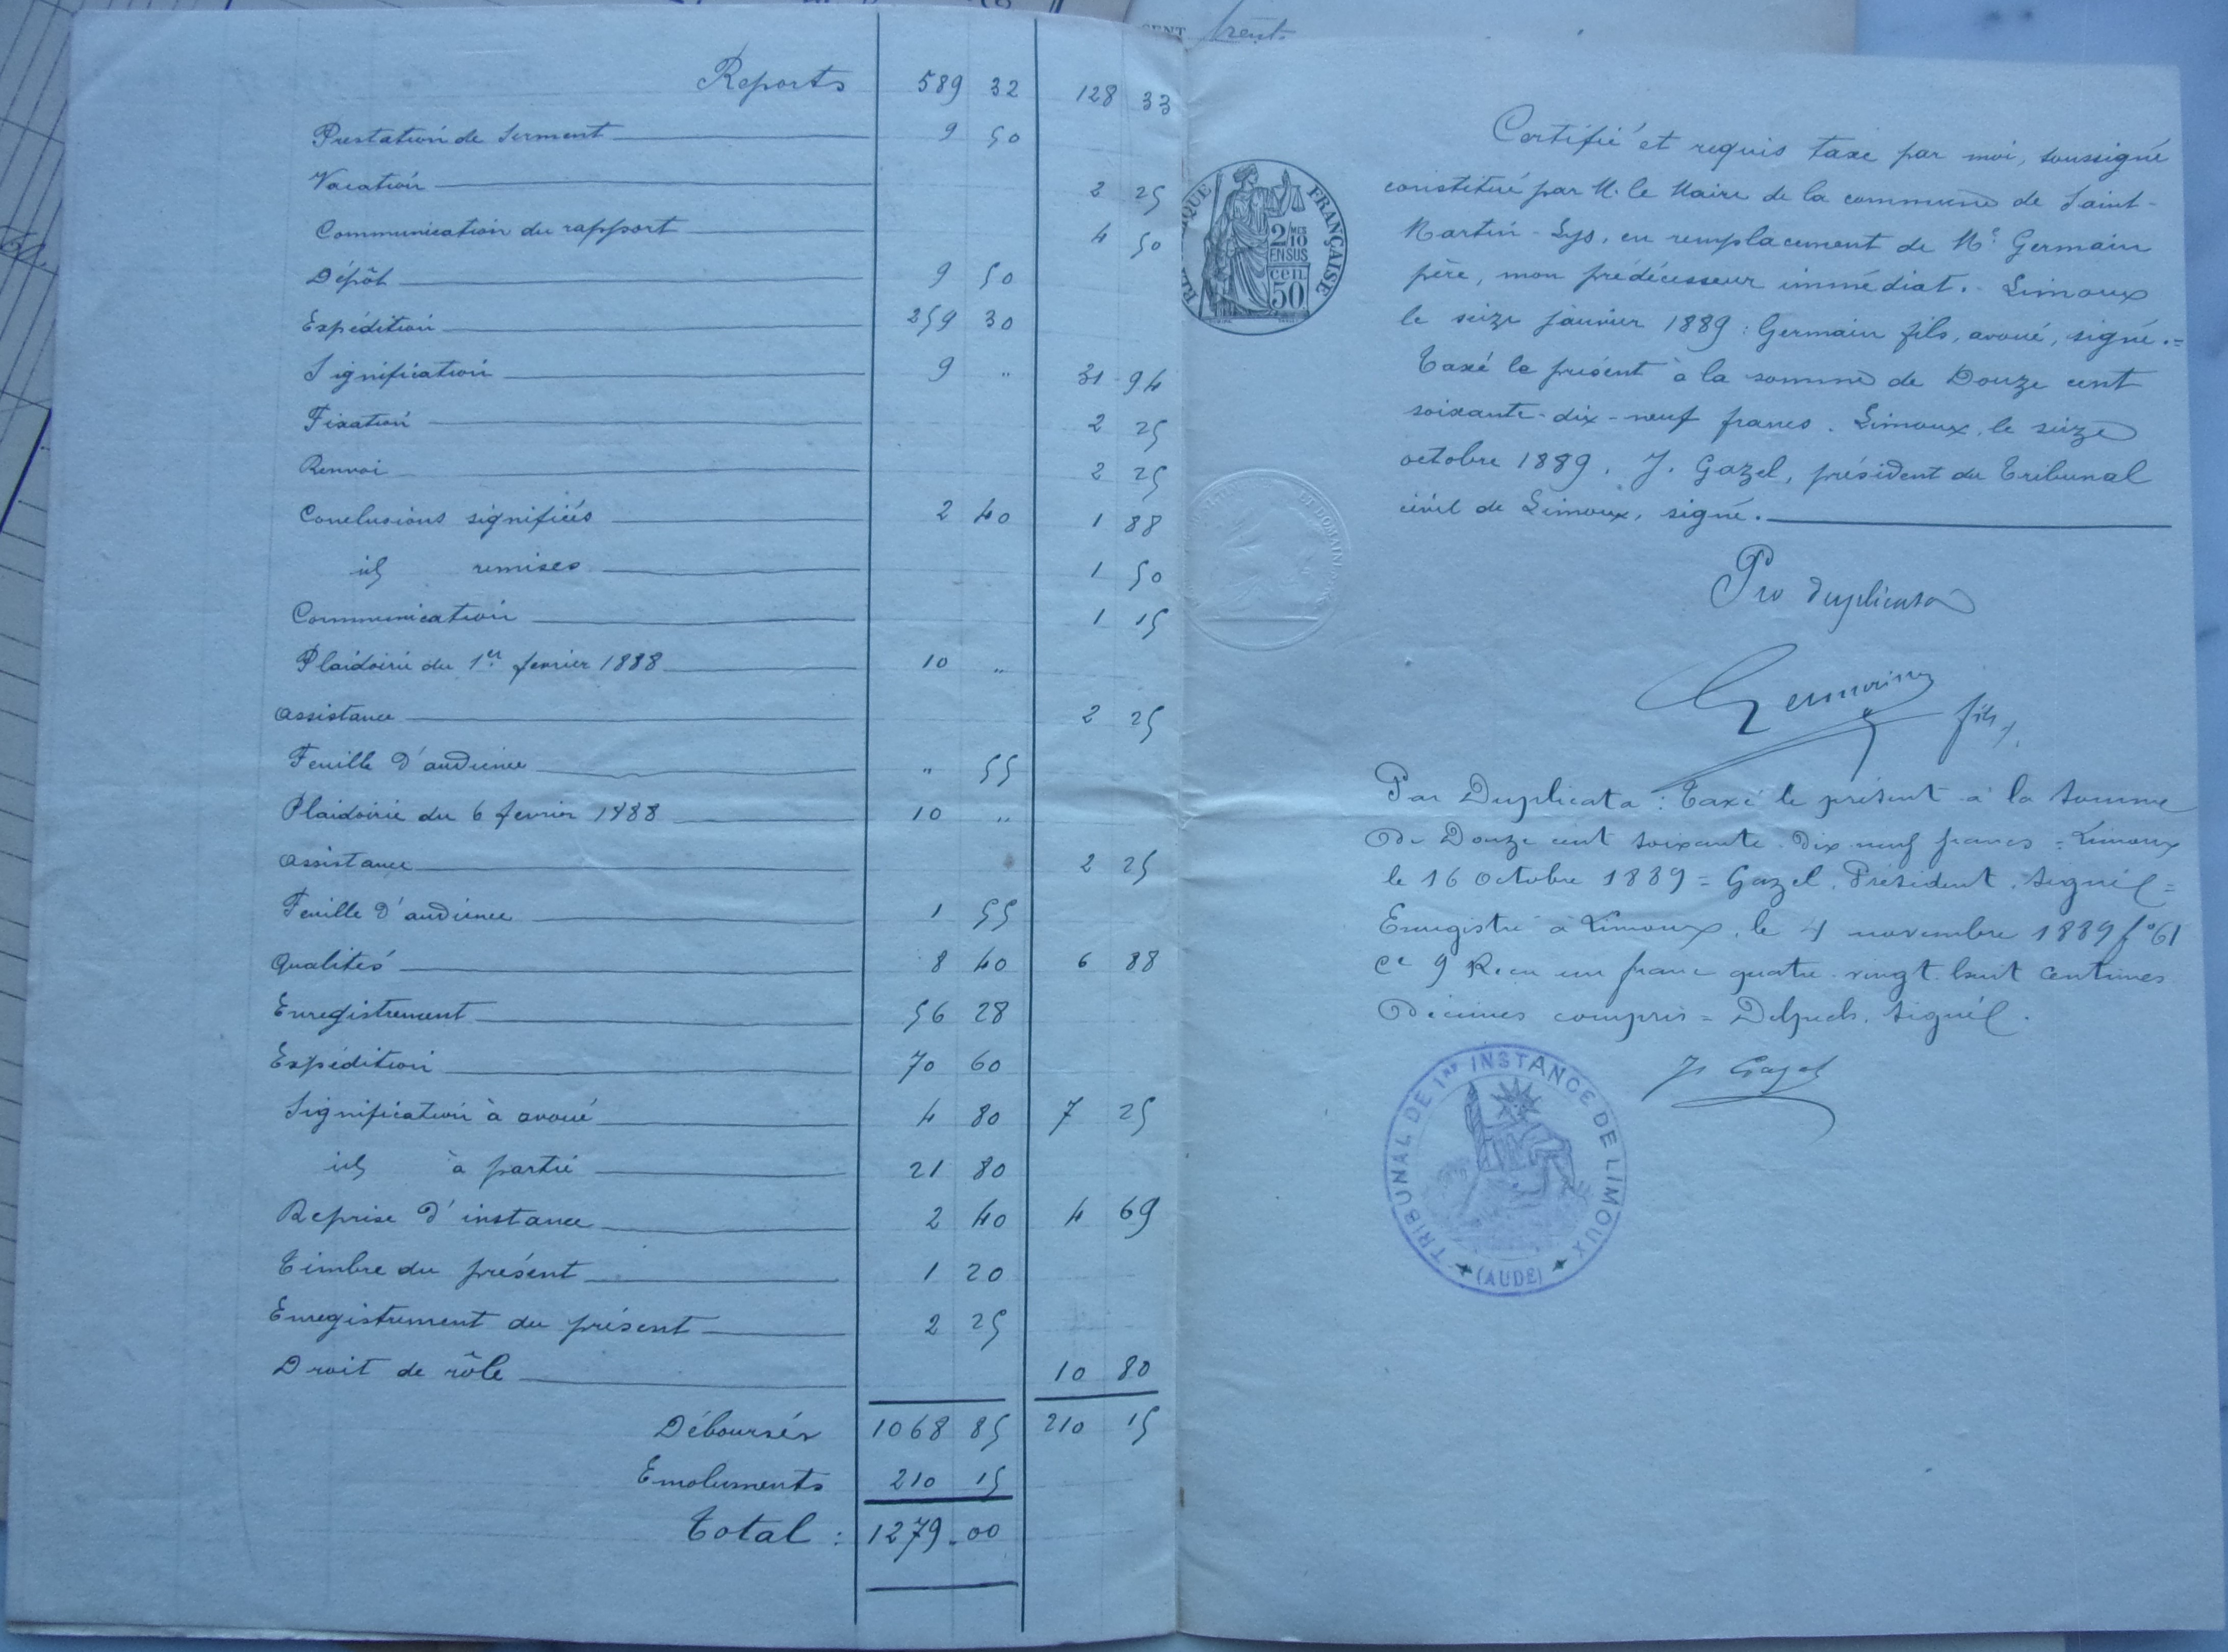 CENT trente
Reports 589 32 128 33
Prestation de serment 9 50
Vacation 2 25
Communication du rapport 4 50
Dépôt 9 50
Expédition 259 30
Signification 9 " 31 94
Fixation 2 25
Renvoi 2 25
Conclusions signifiées 2 40 1 88
id remises 1 50
Communication 1 15
Plaidoirie du 1er fevrier 1888 10 "
Assistance 2 25
Feuille d'audience " 55
Plaidoirie du 6 fevrier 1888 10 "
Assistance 2 25
Feuille d'audience 1 55
Qualités 8 40 6 88
Enregistrement 56 28
Expédition 70 60
Signification à avoué 4 80 7 25
id à partie 21 80
Reprise d'instance 2 40 4 69
Timbre du présent 1 20
Enregistrement du présent 2 25
Droit de rôle 10 80
Déboursés 1068 85 210 15
Emoluments 210 15
Total : 1279.00
Certifié et requis taxe par moi, soussigné
constitué par M. le Maire de la commune de Saint-
Martin-Lys, en remplacement de Me Germain
père, mon prédécesseur immédiat. - Limoux
le seize janvier 1889 : Germain fils, avoué, signé.=
Taxé le présent à la somme de Douze cent
soixante-dix-neuf francs. Limoux, le seize
octobre 1889. J. Gazel, président du Tribunal
civil de Limoux, signé.
Pro duplicata
Germain fils
Par Duplicata : Taxé le présent à la somme
de Douze cent soixante-dix neuf francs = Limoux
le 16 Octobre 1889 = Gazel, Président, signé =
Enregistré à Limoux, le 4 novembre 1889 fo 61
ce 9 Reçu un franc quatre-vingt huit centimes
décimes compris = Delpech, signé.
J. Gazel
FRANÇAISE
2/10 MES
EN SUS
50 cen
TRIBUNAL DE 1RE INSTANCE DE LIMOUX
(AUDE)